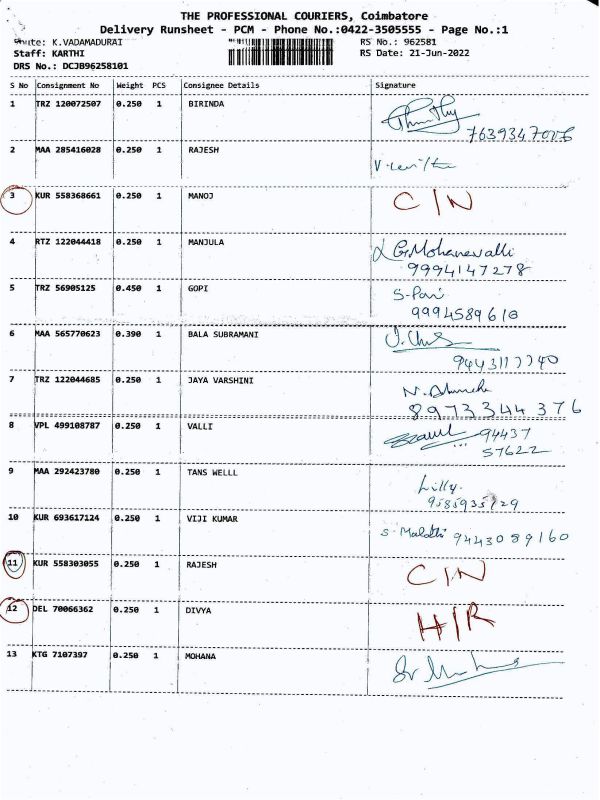 THE PROFESSIONAL COURIERS, Coimbatore
Delivery Runsheet - PCM - Phone No.:0422-3505555 - Page No.:1
Route: K.VADAMADURAI RS No.: 962581
Staff: KARTHI RS Date: 21-Jun-2022
DRS No.: DCJB96258101
S No Consignment No Weight PCS Consignee Details Signature
1 TRZ 120072507 0.250 1 BIRINDA
7639347006
2 MAA 285416028 0.250 1 RAJESH
3 KUR 558368661 0.250 1 MANOJ C/N
4 RTZ 122044418 0.250 1 MANJULA G.Mohanavalli
9994147278
5 TRZ 56905125 0.450 1 GOPI S-Pari
9994589610
6 MAA 565770623 0.390 1 BALA SUBRAMANI
9443117740
7 TRZ 122044685 0.250 1 JAYA VARSHINI
8973344376
8 VPL 499108787 0.250 1 VALLI 94437
57622
9 MAA 292423780 0.250 1 TANS WELLL Lilly.
10 KUR 693617124 0.250 1 VIJI KUMAR S-Malathi 9443089160
11 KUR 558303055 0.250 1 RAJESH C/N
12 DEL 70066362 0.250 1 DIVYA H/R
13 KTG 7107397 0.250 1 MOHANA